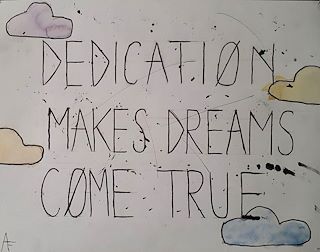 DEDICATIØN
MAKES DREAMS
CØME TRUE
AF